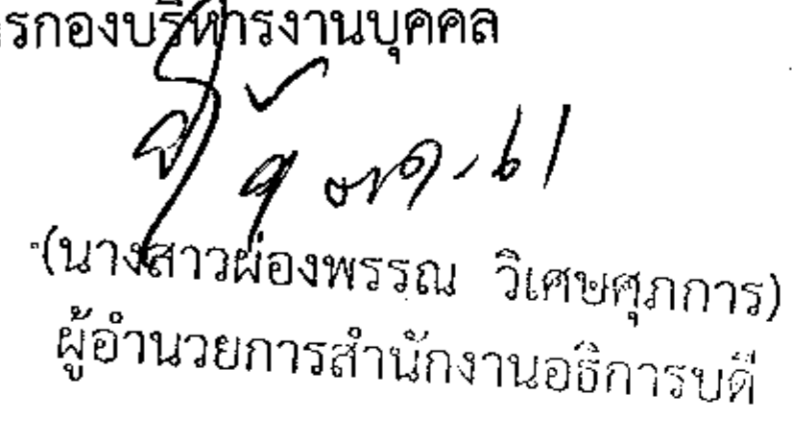 รกองบริหารงานบุคคล
๙ ตค. ๖๑
(นางสาวผ่องพรรณ วิเศษศุภการ)
ผู้อำนวยการสำนักงานอธิการบดี